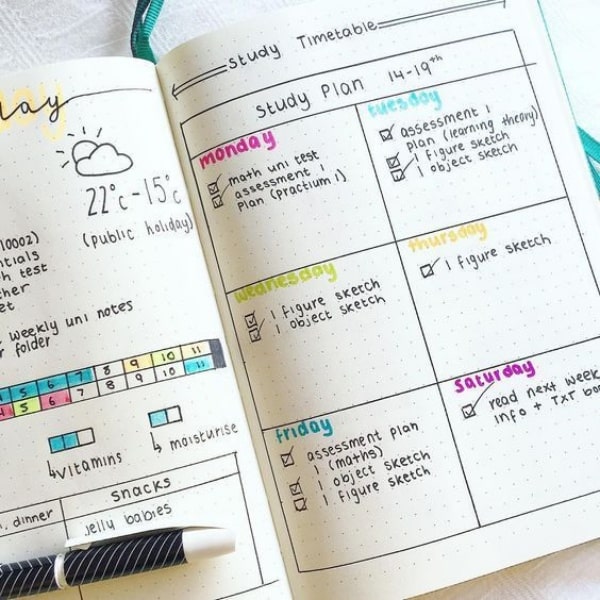 day
22°c - 15°c
(public holiday)
weekly uni notes
folder
5 6 7 8 9 10 11
4 5 6 7 8 9 10 11
vitamins
moisturise
dinner
snacks
jelly babies
study Timetable
study Plan 14-19th
monday
math uni test
assessment 1
plan (practium 1)
tuesday
assessment 1
plan (learning theory)
1 figure sketch
1 object sketch
wednesday
1 figure sketch
1 object sketch
thursday
1 figure sketch
friday
assessment plan
1 (maths)
1 object sketch
1 figure sketch
saturday
read next week
info + TXT